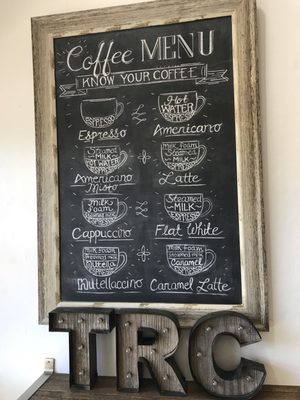 Coffee MENU
KNOW YOUR COFFEE
ESPRESSO
Espresso
Hot
WATER
ESPRESSO
Americano
Steamed
MILK
HOT WATER
ESPRESSO
Americano
Misto
Milk Foam
Steamed
MILK
ESPRESSO
Latte
Milk
Foam
Steamed Milk
ESPRESSO
Cappuccino
STEAMED
MILK
ESPRESSO
Flat White
Milk Foam
Steamed Milk
Nutella
ESPRESSO
Nutellaccino
Milk Foam
Steamed Milk
Caramel
ESPRESSO
Caramel Latte
TRC